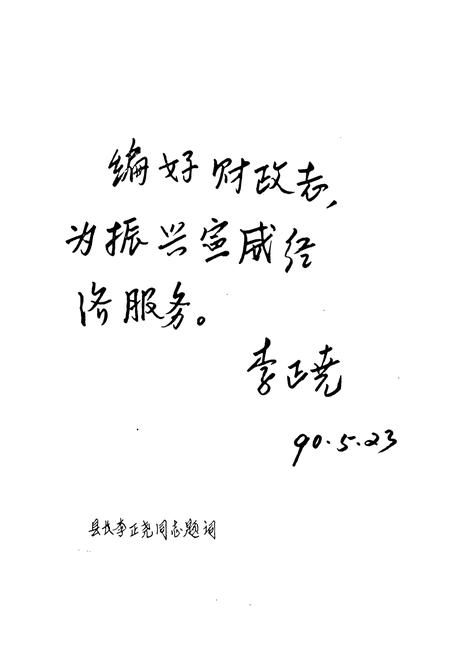 编好财政志,
为振兴宣威经
济服务。
李正尧
90.5.23
县长李正尧同志题词